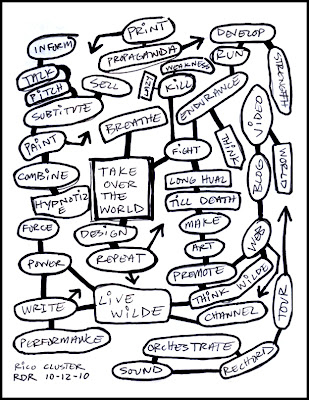 PRINT
DEVELOP
INFORM
PROPAGANDA
RUN
STRENGTH
TALK
PITCH
SELL
WEAKNESS
KILL
ENDURANCE
VIDEO
SUBTITUTE
BREATHE
PAINT
FIGHT
THINK
WORLD
COMBINE
TAKE
OVER
THE
WORLD
LONG HUAL
BLOG
HYPNOTIZ
E
TILL DEATH
FORCE
DESIGN
MAKE
WEB
REPEAT
ART
POWER
PREMOTE
LIVE
WILDE
THINK-WILDE
TOUR
WRITE
CHANNEL
PERFORMANCE
ORCHESTRATE
RECHORD
SOUND
RICO CLUSTER
RDR 10-12-10